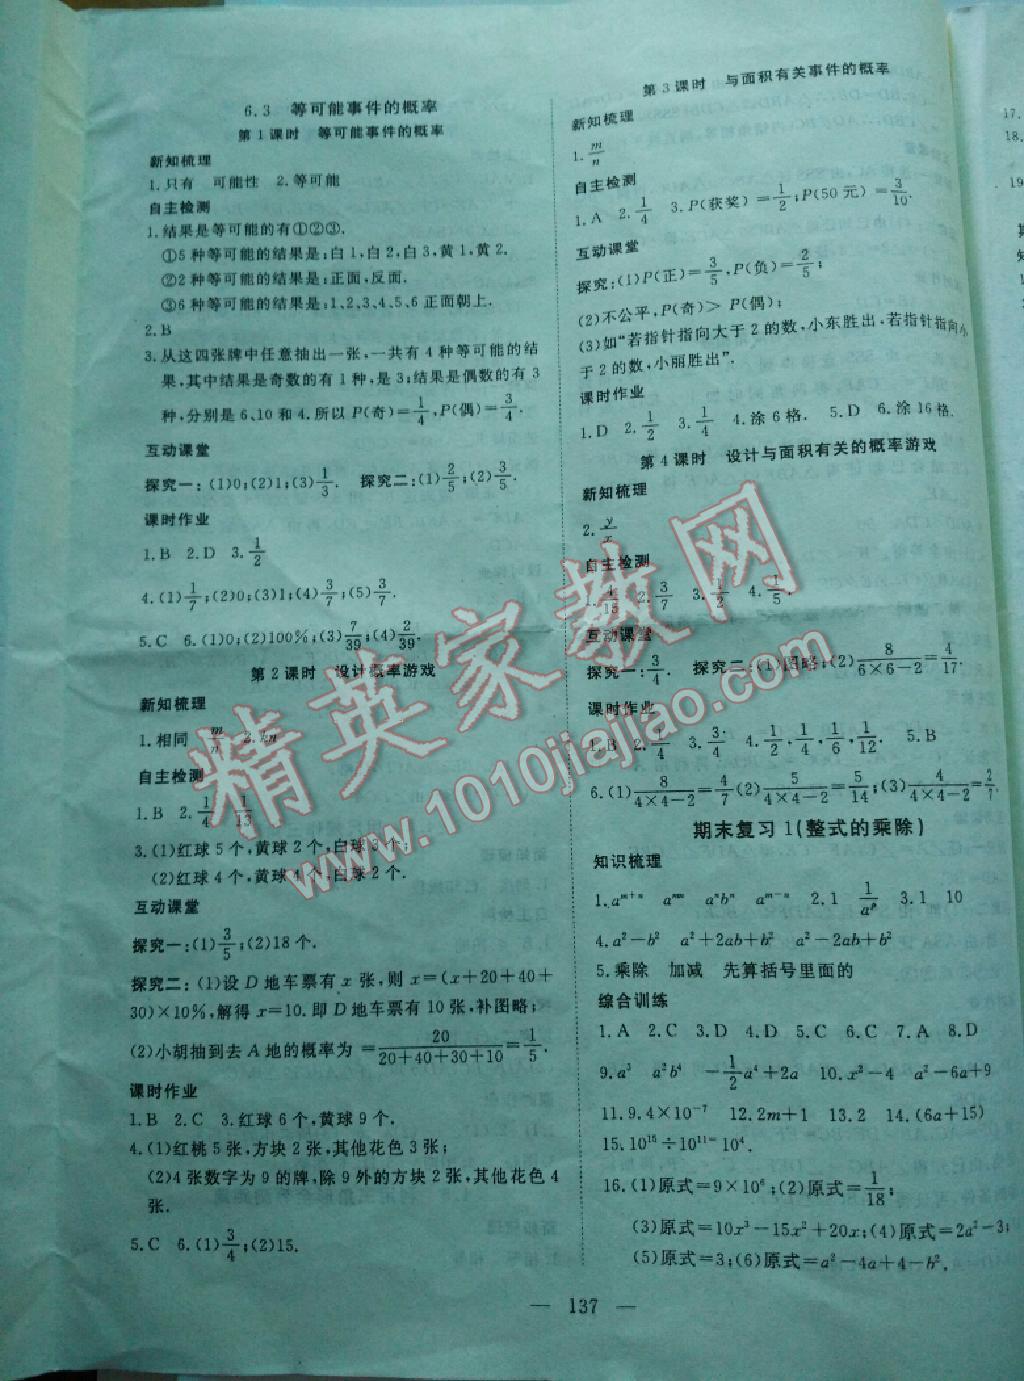 6.3 等可能事件的概率
第1课时 等可能事件的概率
新知梳理
1.只有 可能性 2.等可能
自主检测
1.结果是等可能的有①②③.
①5种等可能的结果是:白1,白2,白3,黄1,黄2.
②2种等可能的结果是:正面,反面.
③6种等可能的结果是:1、2、3、4、5、6正面朝上.
2.B
3.从这四张牌中任意抽出一张,一共有4种等可能的结
果,其中结果是奇数的有1种,是3;结果是偶数的有3
种,分别是6、10和4.所以P(奇)=1/4,P(偶)=3/4.
互动课堂
探究一:(1)0;(2)1;(3)1/3. 探究二:(1)2/5;(2)3/5.
课时作业
1.B 2.D 3.1/2
4.(1)1/7;(2)0;(3)1;(4)3/7;(5)3/7.
5.C 6.(1)0;(2)100%;(3)7/39;(4)2/39.
第2课时 设计概率游戏
新知梳理
1.相同 m/n 2.
自主检测
1.B 2.1/4 1/13
3.(1)红球5个,黄球2个,白球3个;
(2)红球4个,黄球4个,白球2个.
互动课堂
探究一:(1)3/5;(2)18个.
探究二:(1)设D地车票有x张,则x=(x+20+40+
30)×10%,解得x=10.即D地车票有10张,补图略;
(2)小胡抽到去A地的概率为=20/(20+40+30+10)=1/5.
课时作业
1.B 2.C 3.红球6个,黄球9个.
4.(1)红桃5张,方块2张,其他花色3张;
(2)4张数字为9的牌,除9外的方块2张,其他花色4
张.
5.C 6.(1)3/4;(2)15.
第3课时 与面积有关事件的概率
新知梳理
1.m/n
自主检测
1.A 2.1/4 3.P(获奖)=1/2;P(50元)=3/10.
互动课堂
探究:(1)P(正)=3/5,P(负)=2/5;
(2)不公平,P(奇)>P(偶);
(3)如“若指针指向大于2的数,小东胜出,若指针指向小
于2的数,小丽胜出”.
课时作业
1.D 2.1/2 3.1/4 4.涂6格. 5.D 6.涂16格.
第4课时 设计与面积有关的概率游戏
新知梳理
2.y/x
自主检测
1/15 2.3/7 3.1/2 4.1/5.
互动课堂
探究一:3/4. 探究二:(1)图略;(2)8/(6×6-2)=4/17.
课时作业
1.B 2.1/4 3.3/4 4.1/2,1/4,1/6,1/12. 5.B
6.(1)8/(4×4-2)=4/7(2)5/(4×4-2)=5/14;(3)4/(4×4-2)=2/7.
期末复习1(整式的乘除)
知识梳理
1.aᵐ⁺ⁿ aᵐⁿ aⁿbⁿ aᵐ⁻ⁿ 2.1 1/aᵖ 3.1 10
4.a²-b² a²+2ab+b² a²-2ab+b²
5.乘除 加减 先算括号里面的
综合训练
1.A 2.C 3.D 4.D 5.C 6.C 7.A 8.D
9.a³ a²b⁴ -1/2a⁴+2a 10.x²-4 a²-6a+9
11.9.4×10⁻⁷ 12.2m+1 13.2 14.(6a+15)
15.10¹⁵÷10¹¹=10⁴.
16.(1)原式=9×10⁶;(2)原式=1/18;
(3)原式=10x³-15x²+20x;(4)原式=2a²-3;
(5)原式=3;(6)原式=a²-4a+4-b².
— 137 —
17.
18.
19
精英家教网
www.1010jiajiao.com